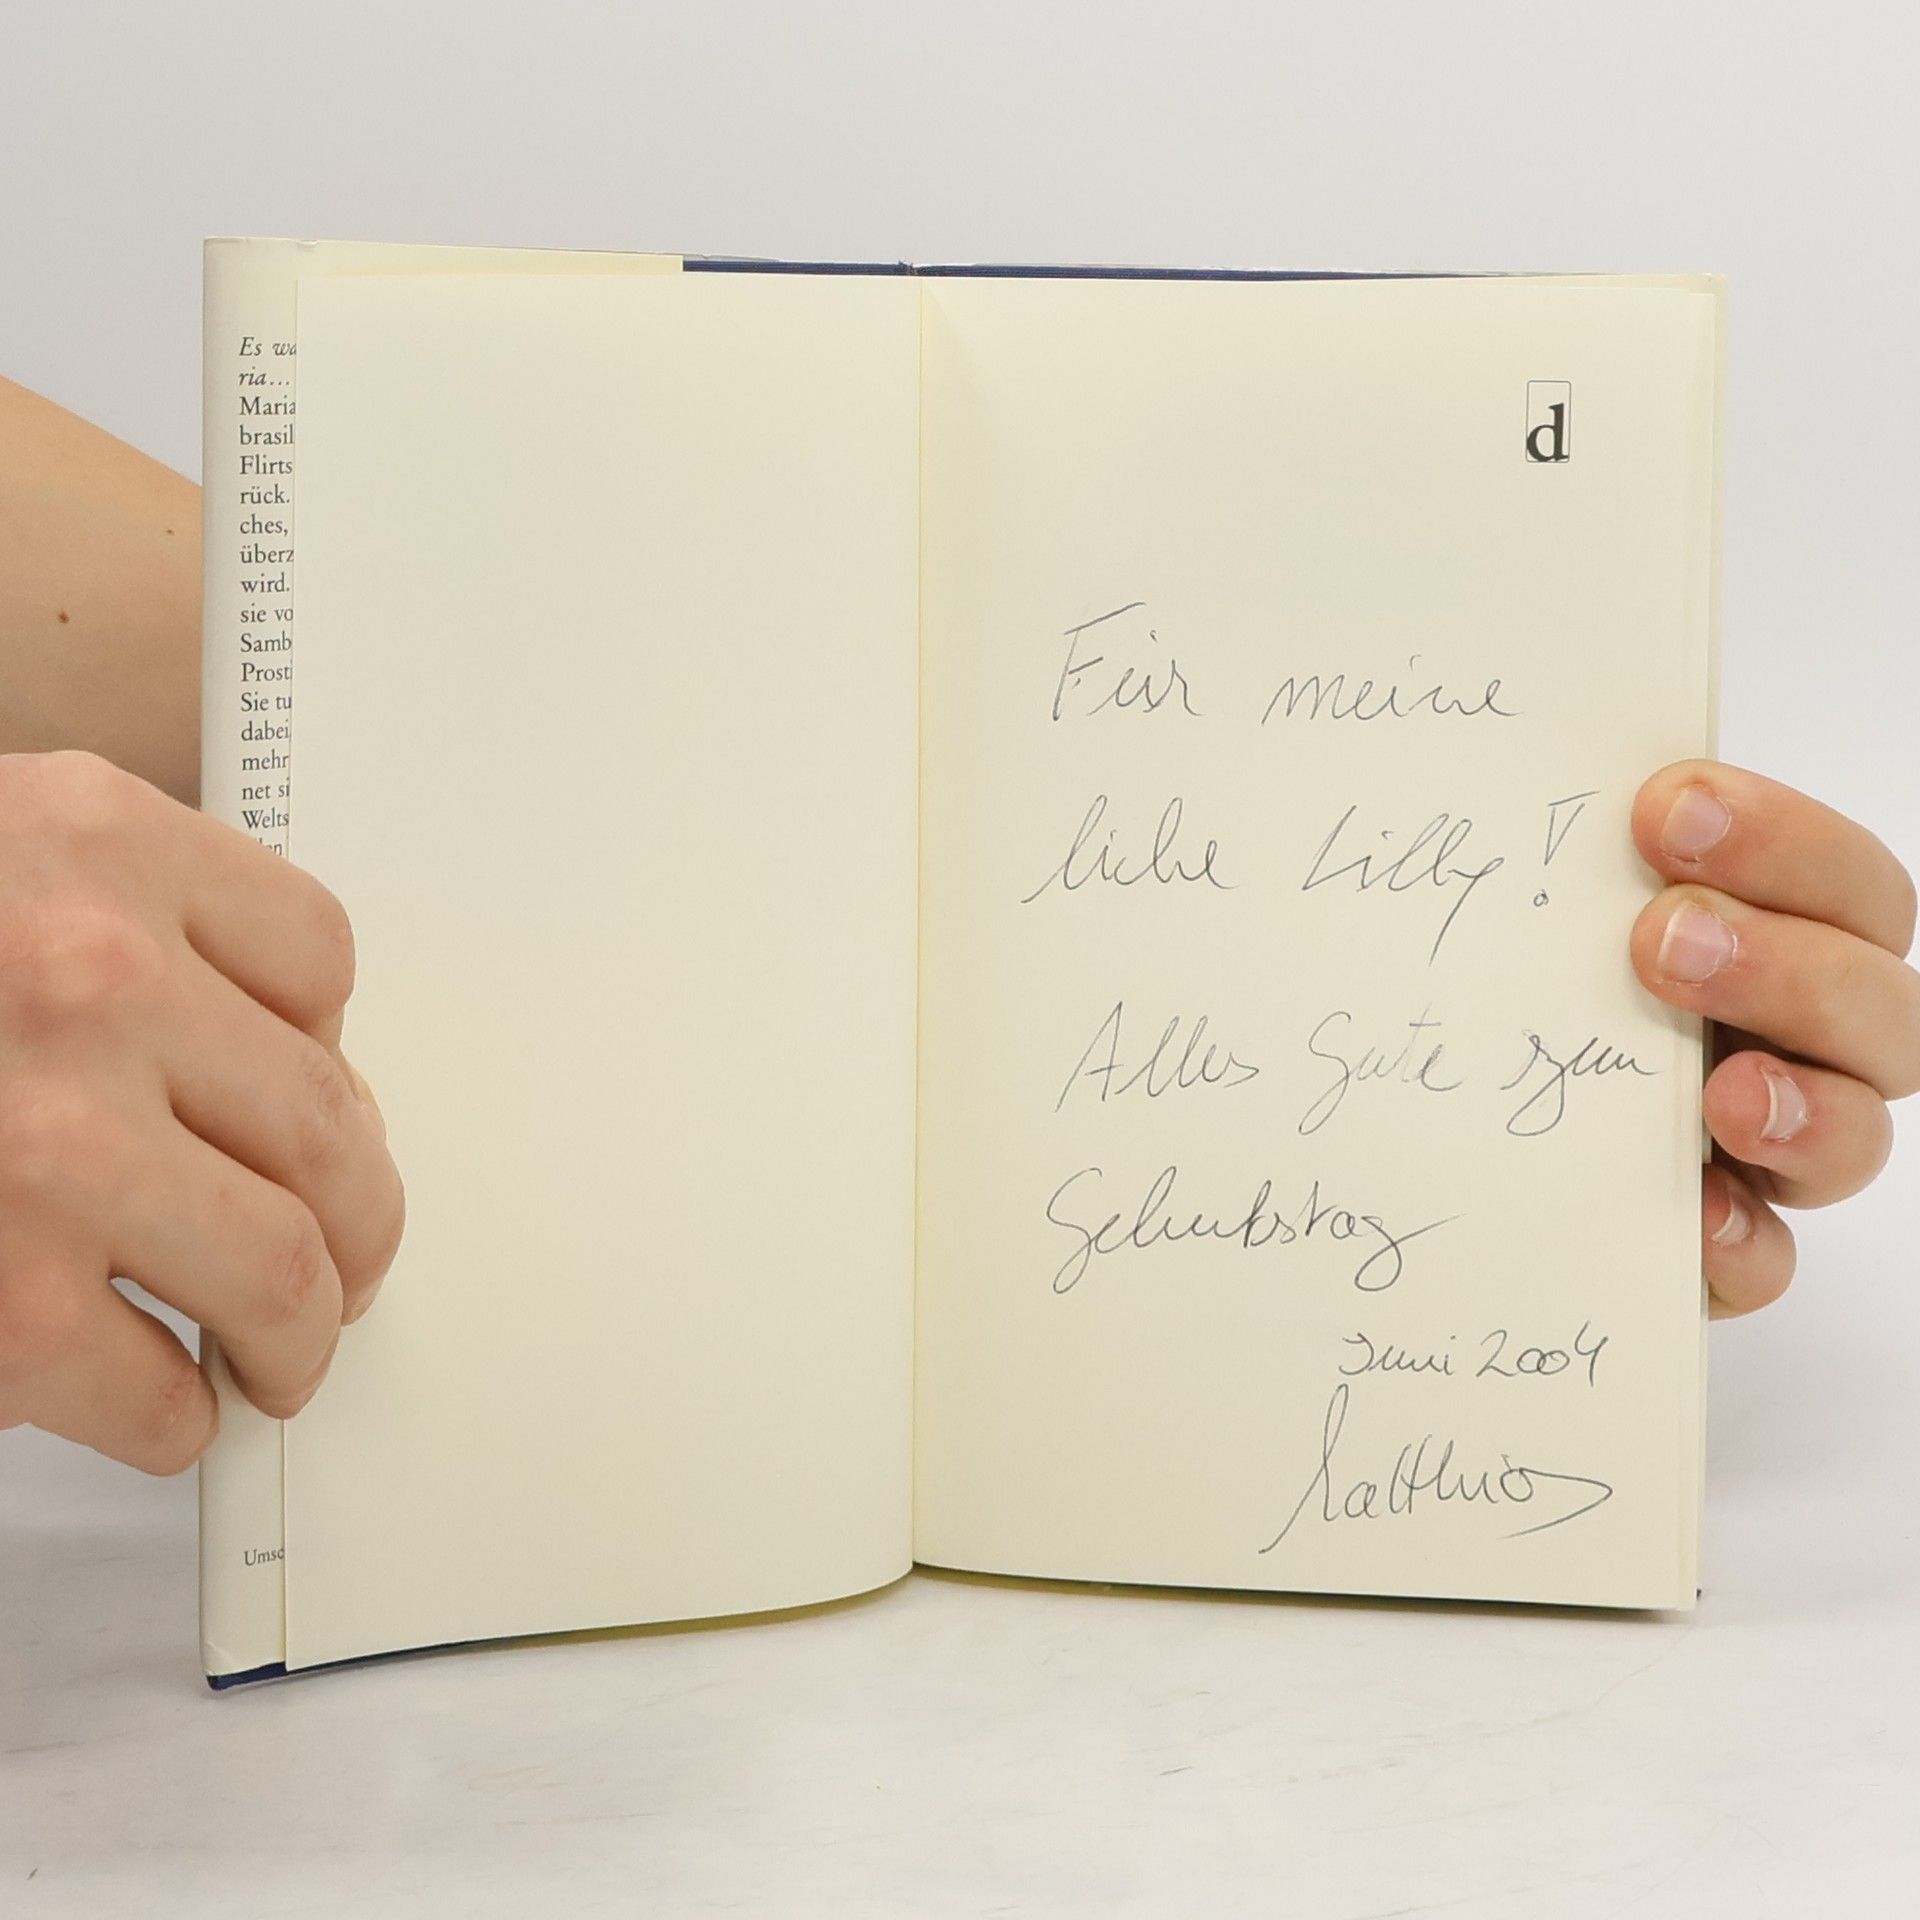 Es wa
ria...
Maria
brasil
Flirts
rück.
ches,
überz
wird.
sie vo
Samb
Prosti
Sie tu
dabei
mehr
net si
Welts
Umsc
d
Für meine
liebe Lilly!
Alles Gute zum
Geburtstag
Juni 2004
Matthias